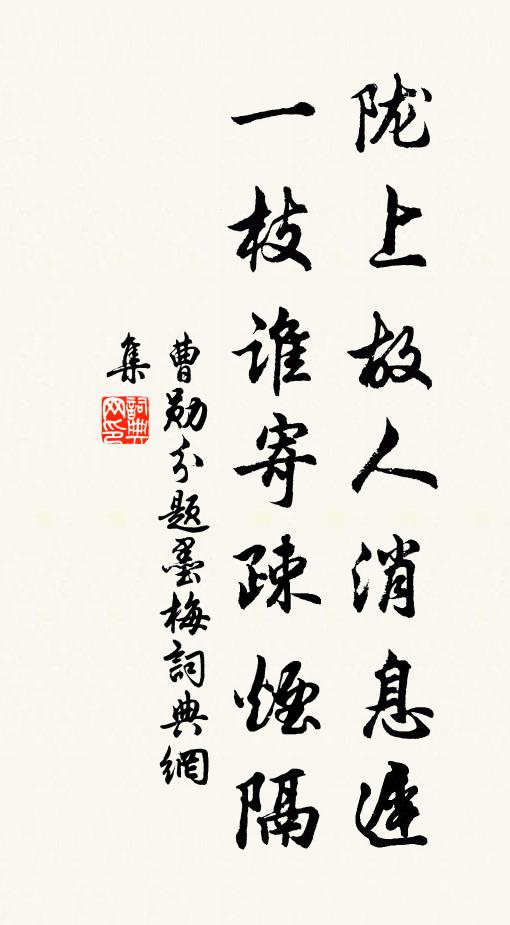 陇上故人消息遲
一枝谁寄疎煙隔
曹勛分題墨梅詞典網
集
詞典
网印